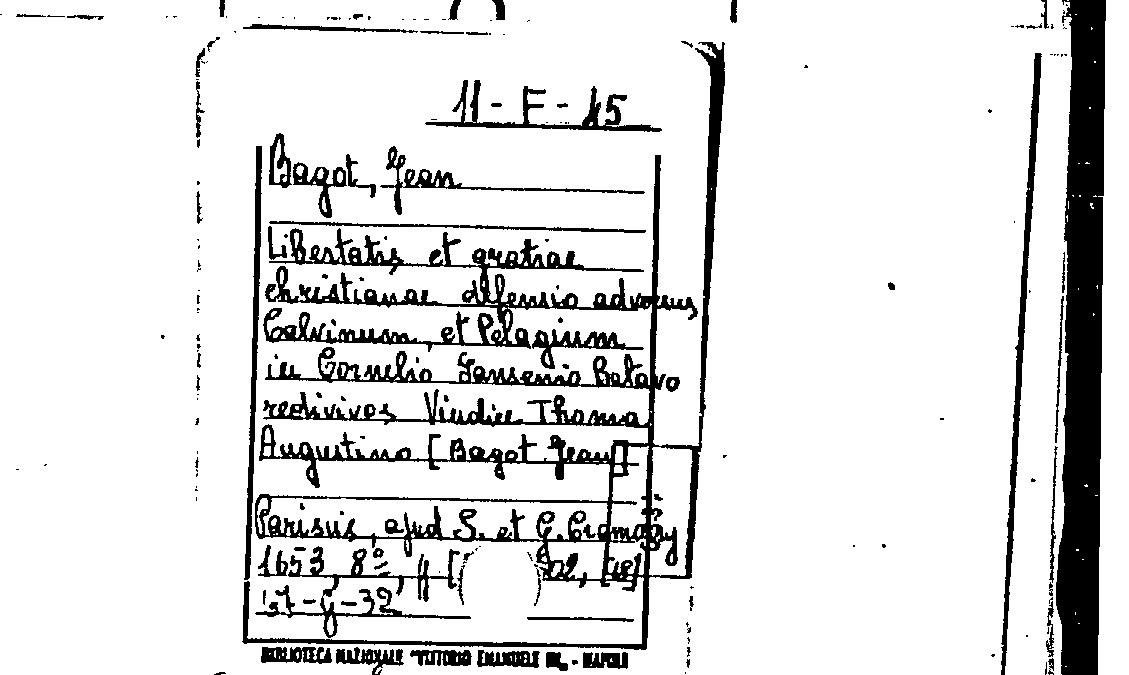 11 - F - 45
Bagot, Jean
Libertatis et gratiae
christianae defensio adversus
Calvinum, et Pelagium
in Cornelio Jansenio Batavo
redivivos Vindice Thoma
Augustino [Bagot Jean]
Parisiis, apud S. et G. Cramoisy
1653, 8º, [ 02, [18]
57-G-32
BIBLIOTECA NAZIONALE "VITTORIO EMANUELE III" - NAPOLI